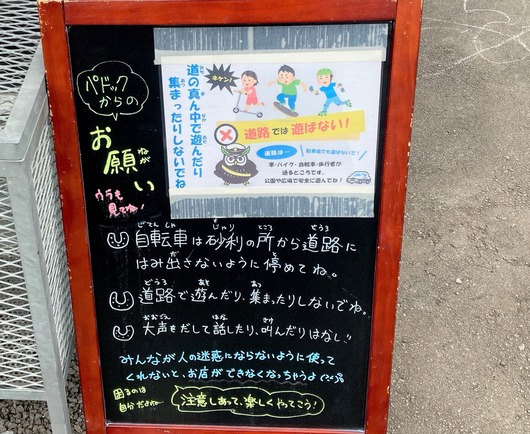 パドック
からの
お願い
ねが
ウラも
見てね!
道の真ん中で遊んだり
集まったりしないでね
キケン!
道路では 遊ばない!
道路は…
駐車場でも遊ばないで!
車・バイク・自転車・歩行者が
通るところです。
公園や広場で安全に遊んでね!
じてんしゃ じゃり ところ どうろ
自転車は砂利の所から道路に
だ と
はみ出さないように停めてね。
どうろ あそ あつ
道路で遊んだり、集まったりしないでね。
おおごえ はな さけ
大声をだして話したり、叫んだりはなし!!
みんなが人の迷惑にならないように使って
くれないと、お店ができなくなっちゃうよ
困るのは
自分だよね…
注意しあって、楽しくやってこう!